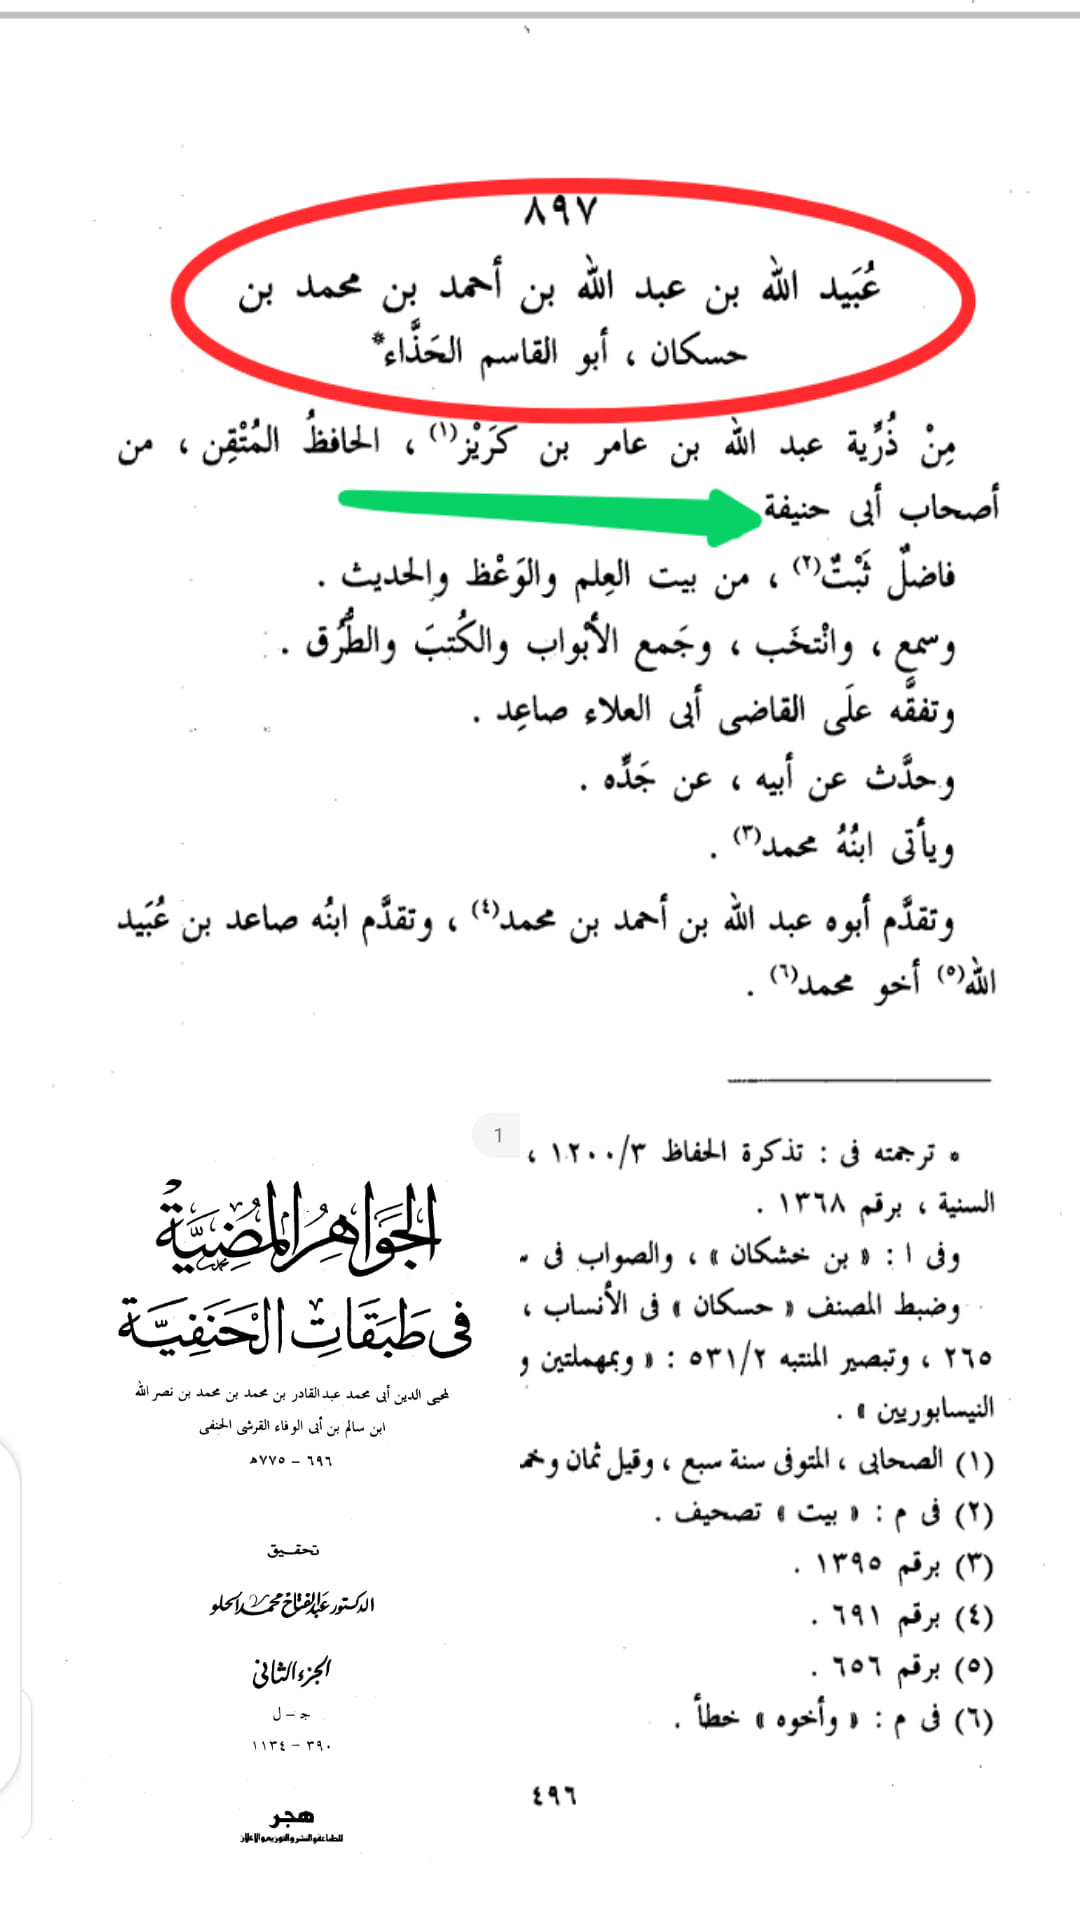 ٨٩٧
عُبَيد الله بن عبد الله بن أحمد بن محمد بن
حسكان ، أبو القاسم الحَذَّاء*
مِنْ ذُرِّية عبد الله بن عامر بن كَرَيْز(١) ، الحافظُ المُتْقِن ، من
أصحاب أبى حنيفة
فاضلٌ ثَبْتٌ(٢) ، من بيت العِلم والوَعْظ والحديث .
وسمع ، وانْتخَب ، وجَمع الأبْواب والكُتبَ والطُّرُق .
وتفقَّه علَى القاضى أبى العلاء صاعِد .
وحدَّث عن أبيه ، عن جَدِّه .
ويأتى ابنُهُ محمد(٣) .
وتقدَّم أبوه عبد الله بن أحمد بن محمد(٤) ، وتقدَّم ابنُه صاعد بن عُبَيد
الله(٥) أخو محمد(٦) .
* ترجمته فى : تذكرة الحفاظ ١٢٠٠/٣ ،
السنية ، برقم ١٣٦٨ .
وفى ا : « بن خشكان » ، والصواب فى
وضبط المصنف « حسكان » فى الأنساب ،
٢٦٥ ، وتبصير المنتبه ٥٣١/٢ : « وبمهملتين و
النيسابوريين » .
(١) الصحابى ، المتوفى سنة سبع ، وقيل ثمان
(٢) فى م : « بيت » تصحيف .
(٣) برقم ١٣٩٥ .
(٤) برقم ٦٩١ .
(٥) برقم ٦٥٦ .
(٦) فى م : « وأخوه » خطأ .
٤٩٦
1
الجَوَاهِرُ المُضِيَّة
فى طَبَقَاتِ الْحَنَفِيَّة
لمحيى الدين أبى محمد عبد القادر بن محمد بن محمد بن نصر الله
ابن سالم بن أبى الوفاء القرشى الحنفى
٦٩٦ – ٧٧٥ هـ
تحقيق
الدكتور عبد الفتاح محمد الحلو
الجزء الثانى
جـ – ل
٣٩٠ – ١١٣٤
هجر
للطباعة والنشر والتوزيع والإعلان